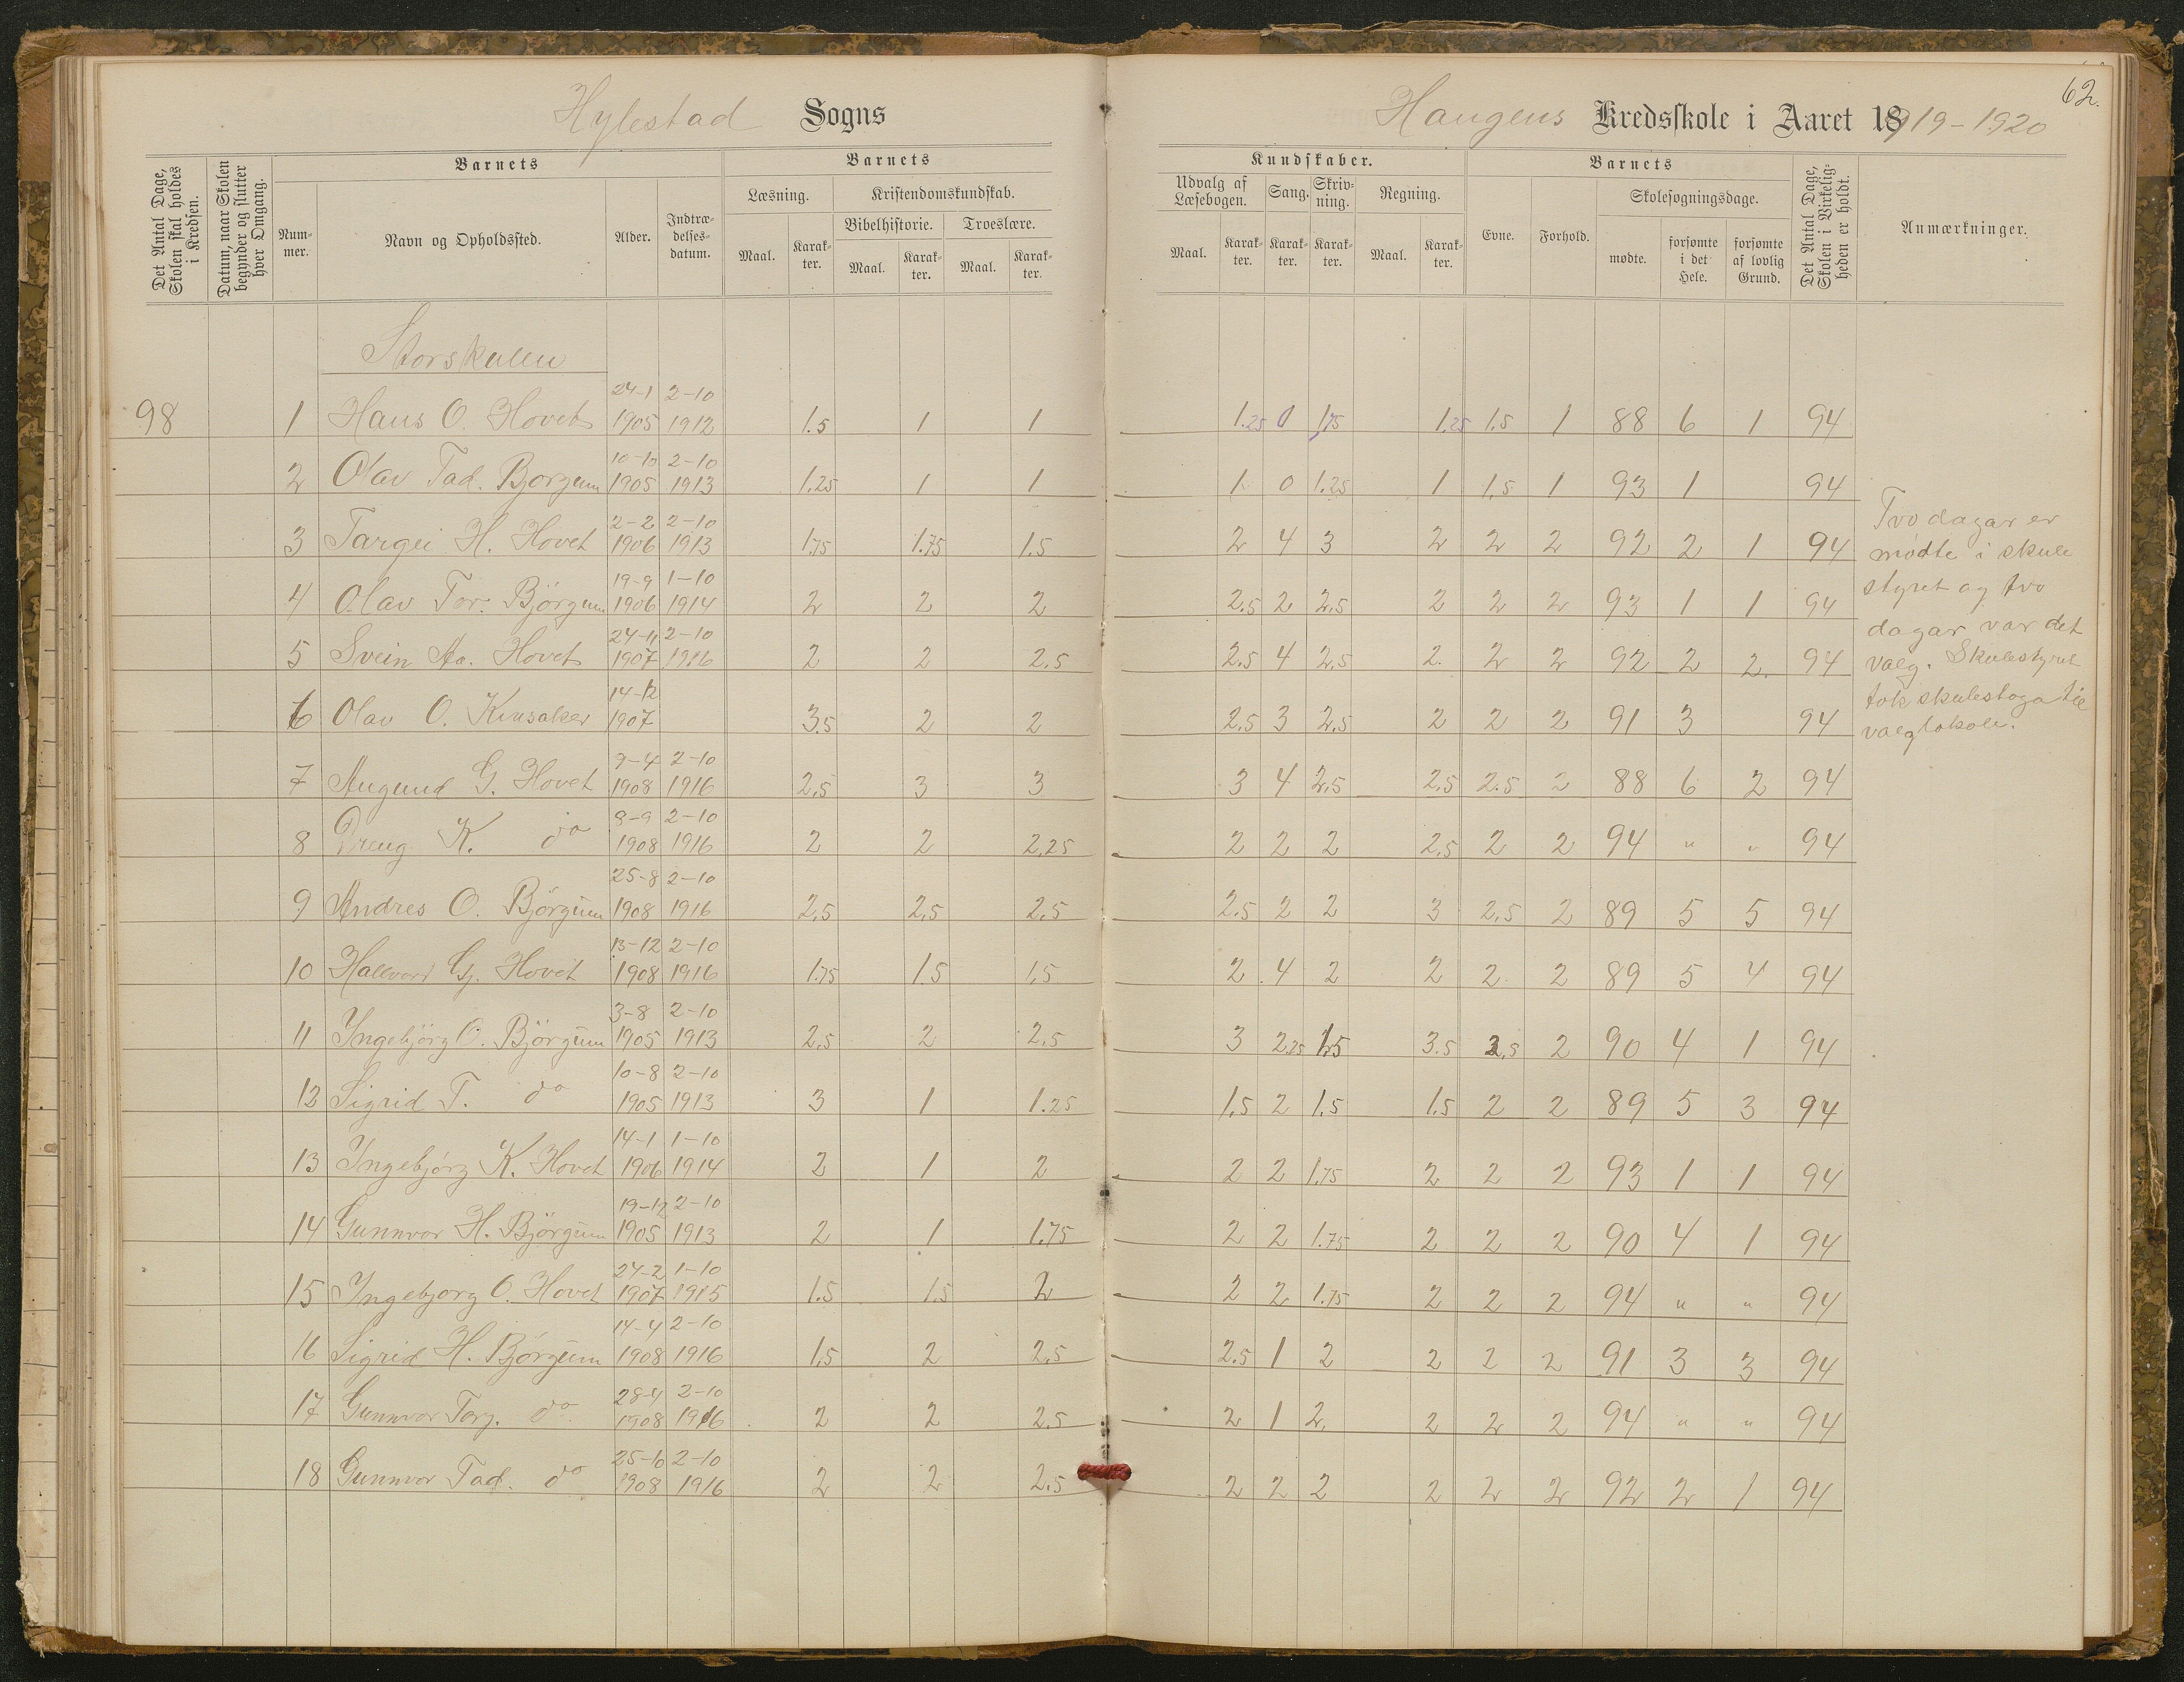 62.
Hylestad Sogns
Haugens Kredsskole i Aaret 1919-1920
Det Antal Dage, Skolen skal holdes i Kredsen.
Datum, naar Skolen begynder og slutter hver Omgang.
Barnets
Nummer.
Navn og Opholdssted.
Alder.
Indtrædelsesdatum.
Barnets
Læsning.
Kristendomskundskab.
Bibelhistorie.
Troeslære.
Maal. Karakter. Maal. Karakter. Maal. Karakter.
Kundskaber.
Udvalg af Læsebogen.
Sang.
Skrivning.
Regning.
Maal. Karakter. Karakter. Karakter. Maal. Karakter.
Barnets
Evne.
Forhold.
Skolesøgningsdage.
mødte.
forsømte i det Hele.
forsømte af lovlig Grund.
Det Antal Dage, Skolen i Virkeligheden er holdt.
Anmærkninger.
Storskulen
98 1 Hans O. Hovet 24-1 1905 2-10 1912 1.5 1 1 1.25 0 1,75 1.25 1.5 1 88 6 1 94
2 Olav Tad. Bjorgum 10-10 1905 2-10 1913 1.25 1 1 1 0 1.25 1 1,5 1 93 1 94
3 Targei H. Hovet 2-2 1906 2-10 1913 1.75 1.75 1.5 2 4 3 2 2 2 92 2 1 94
4 Olav Tor. Björgum 19-9 1906 1-10 1914 2 2 2 2.5 2 2,5 2 2 2 93 1 1 94
5 Svein Aa. Hovet 24-11 1907 2-10 1916 2 2 2.5 2.5 4 2,5 2. 2 2 92 2 2. 94
6 Olav O. Kinsaker 14-12 1907 3.5 2 2 2.5 3 2,5 2 2 2 91 3 94
7 Augund G. Hovet 9-4 1908 2-10 1916 2,5 3 3 3 4 2,5 2,5 2.5 2 88 6 2 94
8 Dreng K. do 8-9 1908 2-10 1916 2 2 2,25 2 2 2 2,5 2 2 94 " " 94
9 Andres O. Björgum 25-8 1908 2-10 1916 2,5 2,5 2,5 2.5 2 2 3 2,5 2 89 5 5 94
10 Hallvard Gj. Hovet 13-12 1908 2-10 1916 1.75 1.5 1,5 2 4 2 2 2 2 89 5 4 94
11 Yngebjörg O. Björgum 3-8 1905 2-10 1913 2,5 2 2,5 3 2.25 1,5 3.5 3,5 2 90 4 1 94
12 Sigrid T. do 10-8 1905 2-10 1913 3 1 1.25 1,5 2 1,5 1.5 2 2 89 5 3 94
13 Yngebjörg K. Hovet 14-1 1906 1-10 1914 2 1 2 2 2 1,75 2 2 2 93 1 1 94
14 Gunnvor H. Björgum 19-12 1905 2-10 1913 2 1 1.75 2 2 1.75 2 2 2 90 4 1 94
15 Yngebjorg O. Hovet 24-2 1907 1-10 1915 1.5 1,5 2 2 2 1.75 2 2 2 94 " " 94
16 Sigrid H. Björgum 14-4 1908 2-10 1916 1,5 2 2,5 2.5 1 2 2 2 2 91 3 3 94
17 Gunnvor Torg. do. 28-4 1908 2-10 1916 2 2 2.5 2 1 2, 2 2 2 94 " " 94
18 Gunnvor Tad. do 25-10 1908 2-10 1916 2 2 2.5 2 2 2 2 2 2 92 2 1 94
Tvo dagar er
mødte i skule
styret og tvo
dagar var det
valg. Skulestyret
tok skulestoga til
valglokale.